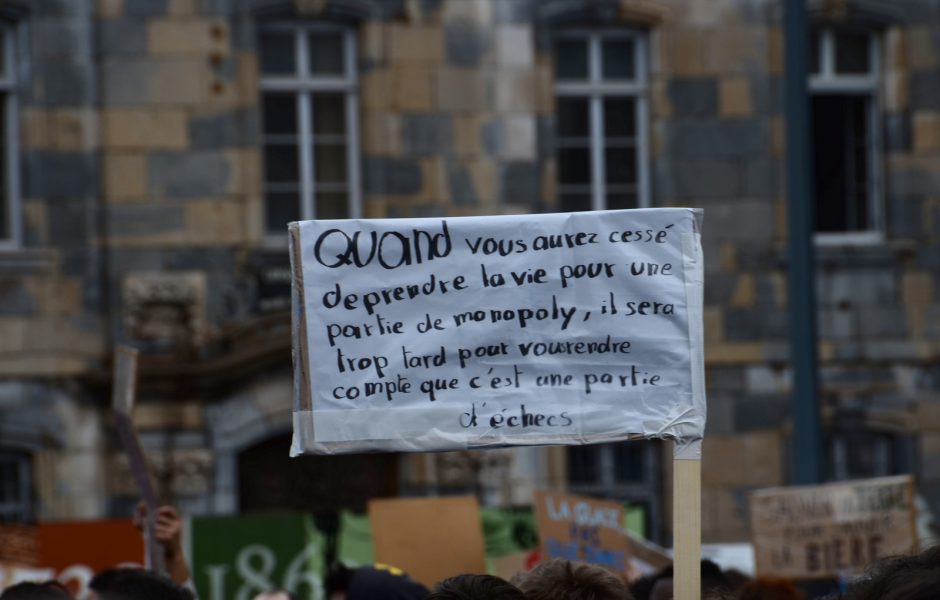 QUAND vous aurez cessé
de prendre la vie pour une
partie de monopoly, il sera
trop tard pour vous rendre
compte que c'est une partie
d'échecs
186
LA
PAS
LA BIERE